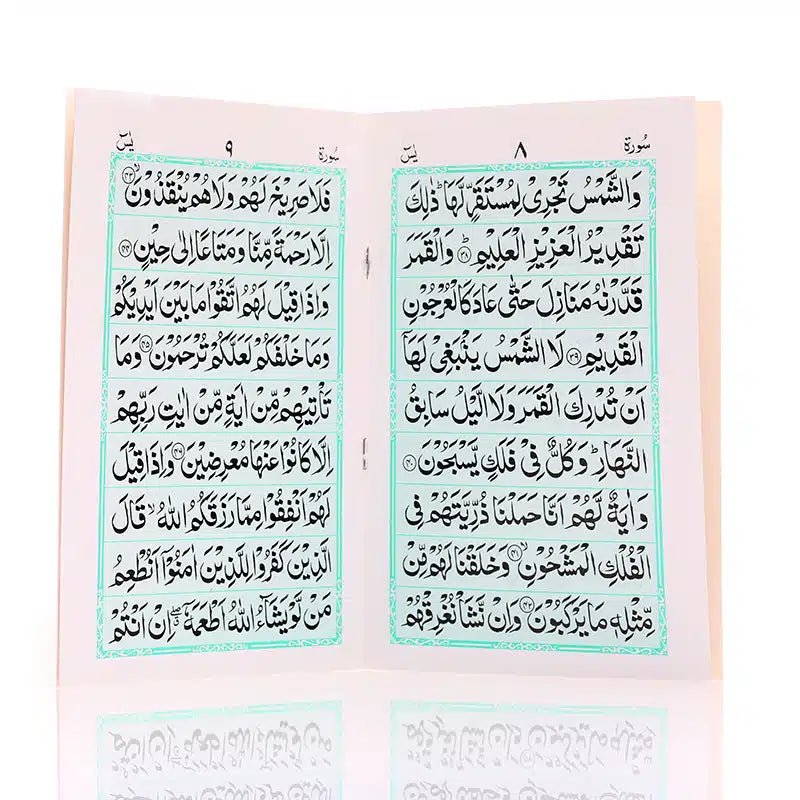 سُورَة ٨ يٰسٓ
وَالشَّمْسُ تَجْرِیْ لِمُسْتَقَرٍّ لَّهَا ؕ ذٰلِكَ
تَقْدِیْرُ الْعَزِیْزِ الْعَلِیْمِ ﴿۳۸﴾ وَالْقَمَرَ
قَدَّرْنٰهُ مَنَازِلَ حَتّٰی عَادَ كَالْعُرْجُوْنِ
الْقَدِیْمِ ﴿۳۹﴾ لَا الشَّمْسُ یَنْۢبَغِیْ لَهَاۤ
اَنْ تُدْرِكَ الْقَمَرَ وَلَا الَّیْلُ سَابِقُ
النَّهَارِ ؕ وَكُلٌّ فِیْ فَلَكٍ یَّسْبَحُوْنَ ﴿۴۰﴾
وَاٰیَةٌ لَّهُمْ اَنَّا حَمَلْنَا ذُرِّیَّتَهُمْ فِی
الْفُلْكِ الْمَشْحُوْنِ ۙ﴿۴۱﴾ وَخَلَقْنَا لَهُمْ مِّنْ
مِّثْلِهٖ مَا یَرْكَبُوْنَ ﴿۴۲﴾ وَاِنْ نَّشَاْ نُغْرِقْهُمْ
سُورَة ٩ يٰسٓ
فَلَا صَرِیْخَ لَهُمْ وَلَا هُمْ یُنْقَذُوْنَ ۙ﴿۴۳﴾
اِلَّا رَحْمَةً مِّنَّا وَمَتَاعًا اِلٰی حِیْنٍ ﴿۴۴﴾
وَاِذَا قِیْلَ لَهُمُ اتَّقُوْا مَا بَیْنَ اَیْدِیْكُمْ
وَمَا خَلْفَكُمْ لَعَلَّكُمْ تُرْحَمُوْنَ ﴿۴۵﴾ وَمَا
تَاْتِیْهِمْ مِّنْ اٰیَةٍ مِّنْ اٰیٰتِ رَبِّهِمْ
اِلَّا كَانُوْا عَنْهَا مُعْرِضِیْنَ ﴿۴۶﴾ وَاِذَا قِیْلَ
لَهُمْ اَنْفِقُوْا مِمَّا رَزَقَكُمُ اللّٰهُ ۙ قَالَ
الَّذِیْنَ كَفَرُوْا لِلَّذِیْنَ اٰمَنُوْۤا اَنُطْعِمُ
مَنْ لَّوْ یَشَآءُ اللّٰهُ اَطْعَمَهٗۤ ۖ اِنْ اَنْتُمْ